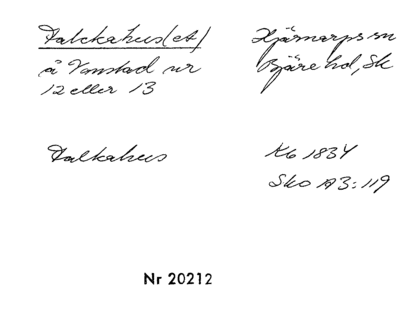 Falckahus(et)
Hjärnarps sn
å Vanstad nr
Bjäre hd, Sk
12 eller 13
Falkahus
Kb 1834
Sko A3:119
Nr 20212